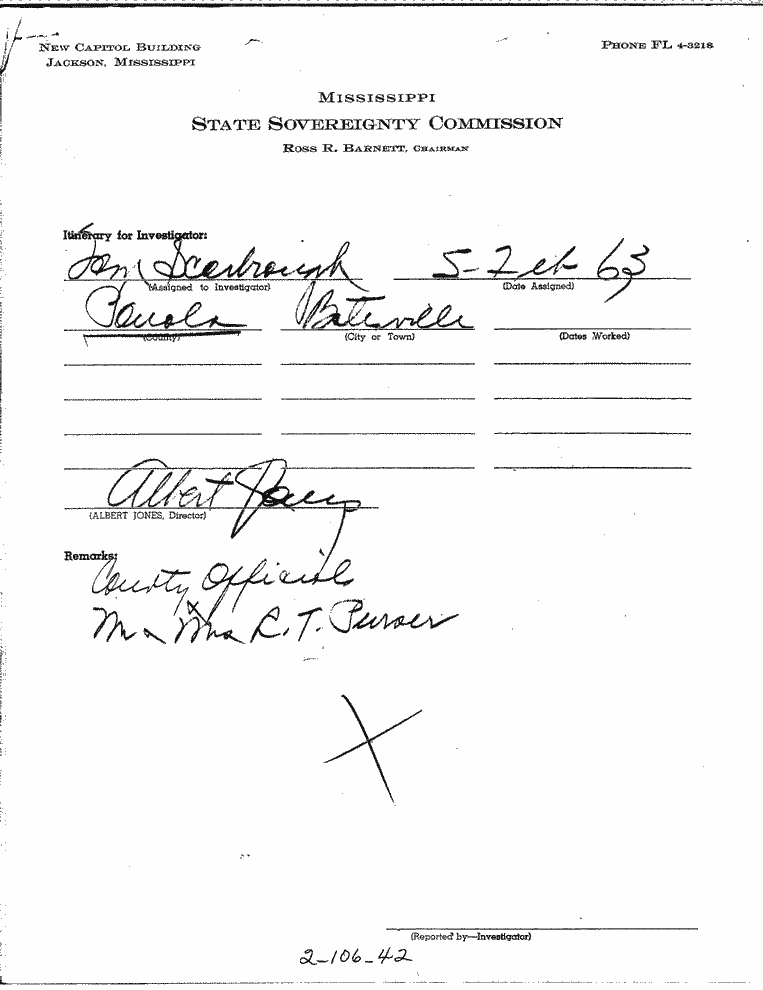 NEW CAPITOL BUILDING
JACKSON, MISSISSIPPI
PHONE FL 4-3218
MISSISSIPPI
STATE SOVEREIGNTY COMMISSION
ROSS R. BARNETT, CHAIRMAN
Itinerary for Investigator:
Tom Scarbrough 5-Feb 63
(Assigned to Investigator) (Date Assigned)
Panola Batesville
(County) (City or Town) (Dates Worked)
Albert Jones
(ALBERT JONES, Director)
Remarks:
County Officials
R. T.
(Reported by—Investigator)
2-106-42